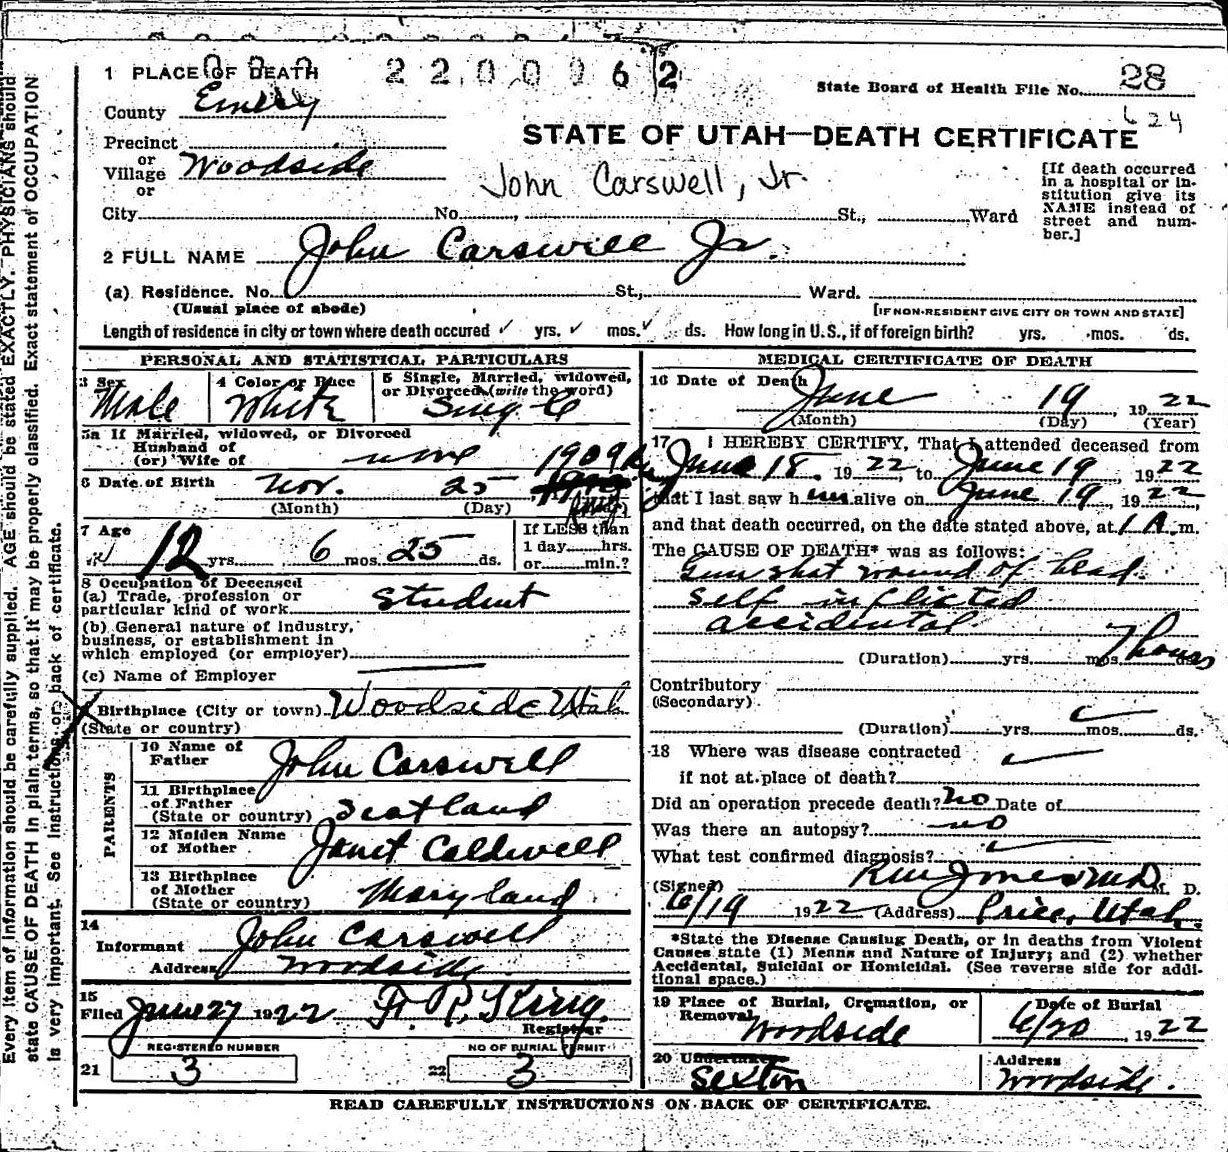 2 2 0 0 0 6 2
1 PLACE OF DEATH
State Board of Health File No. 28
County Emery
624
STATE OF UTAH—DEATH CERTIFICATE
Precinct
or
Village Woodside
or
John Carswell, Jr.
[If death occurred
in a hospital or in-
stitution give its
NAME instead of
street and num-
ber.]
City No. St., Ward
2 FULL NAME John Carswell Jr.
(a) Residence. No. St., Ward.
(Usual place of abode)
[IF NON-RESIDENT GIVE CITY OR TOWN AND STATE]
Length of residence in city or town where death occured ✓ yrs. ✓ mos. ✓ ds. How long in U.S., if of foreign birth? yrs. mos. ds.
PERSONAL AND STATISTICAL PARTICULARS
3 Sex
Male
4 Color or Race
White
5 Single, Married, widowed,
or Divorced (write the word)
Single
5a If Married, widowed, or Divorced
Husband of
(or) Wife of none
6 Date of Birth Nov. 25 1909
(Month) (Day)
7 Age
12 yrs. 6 mos. 25 ds.
If LESS than
1 day hrs.
or min.?
8 Occupation of Deceased
(a) Trade, profession or
particular kind of work student
(b) General nature of industry,
business, or establishment in
which employed (or employer)
(c) Name of Employer
Birthplace (City or town) Woodside Utah
(State or country)
PARENTS
10 Name of
Father John Carswell
11 Birthplace
of Father
(State or country) Scotland
12 Maiden Name
of Mother Janet Caldwell
13 Birthplace
of Mother
(State or country) Maryland
14
Informant John Carswell
Address Woodside
15
Filed June 27 1922 H. P. King.
Registrar
REGISTERED NUMBER
21 3
NO OF BURIAL PERMIT
22 3
MEDICAL CERTIFICATE OF DEATH
16 Date of Death
June 19, 1922
(Month) (Day) (Year)
17 I HEREBY CERTIFY, That I attended deceased from
June 18. 1922, to June 19 1922
that I last saw him alive on June 19, 1922
and that death occurred, on the date stated above, at 1 A.m.
The CAUSE OF DEATH* was as follows:
Gun shot wound of head
self inflicted
accidental
(Duration) yrs. mos. 7 hours ds.
Contributory
(Secondary)
(Duration) yrs. mos. ds.
18 Where was disease contracted
if not at place of death?
Did an operation precede death? no Date of
Was there an autopsy? no
What test confirmed diagnosis?
(Signed) Jones M.D. M. D.
6/19 1922 (Address) Price, Utah.
*State the Disease Causing Death, or in deaths from Violent
Causes state (1) Means and Nature of Injury; and (2) whether
Accidental, Suicidal or Homicidal. (See reverse side for addi-
tional space.)
19 Place of Burial, Cremation, or
Removal
Woodside
Date of Burial
6/20 1922
20 Undertaker
Sexton
Address
Woodside.
READ CAREFULLY INSTRUCTIONS ON BACK OF CERTIFICATE.
Every item of information should be carefully supplied. AGE should be stated EXACTLY. PHYSICIANS should
state CAUSE OF DEATH in plain terms, so that it may be properly classified. Exact statement of OCCUPATION
is very important. See instructions on back of certificate.